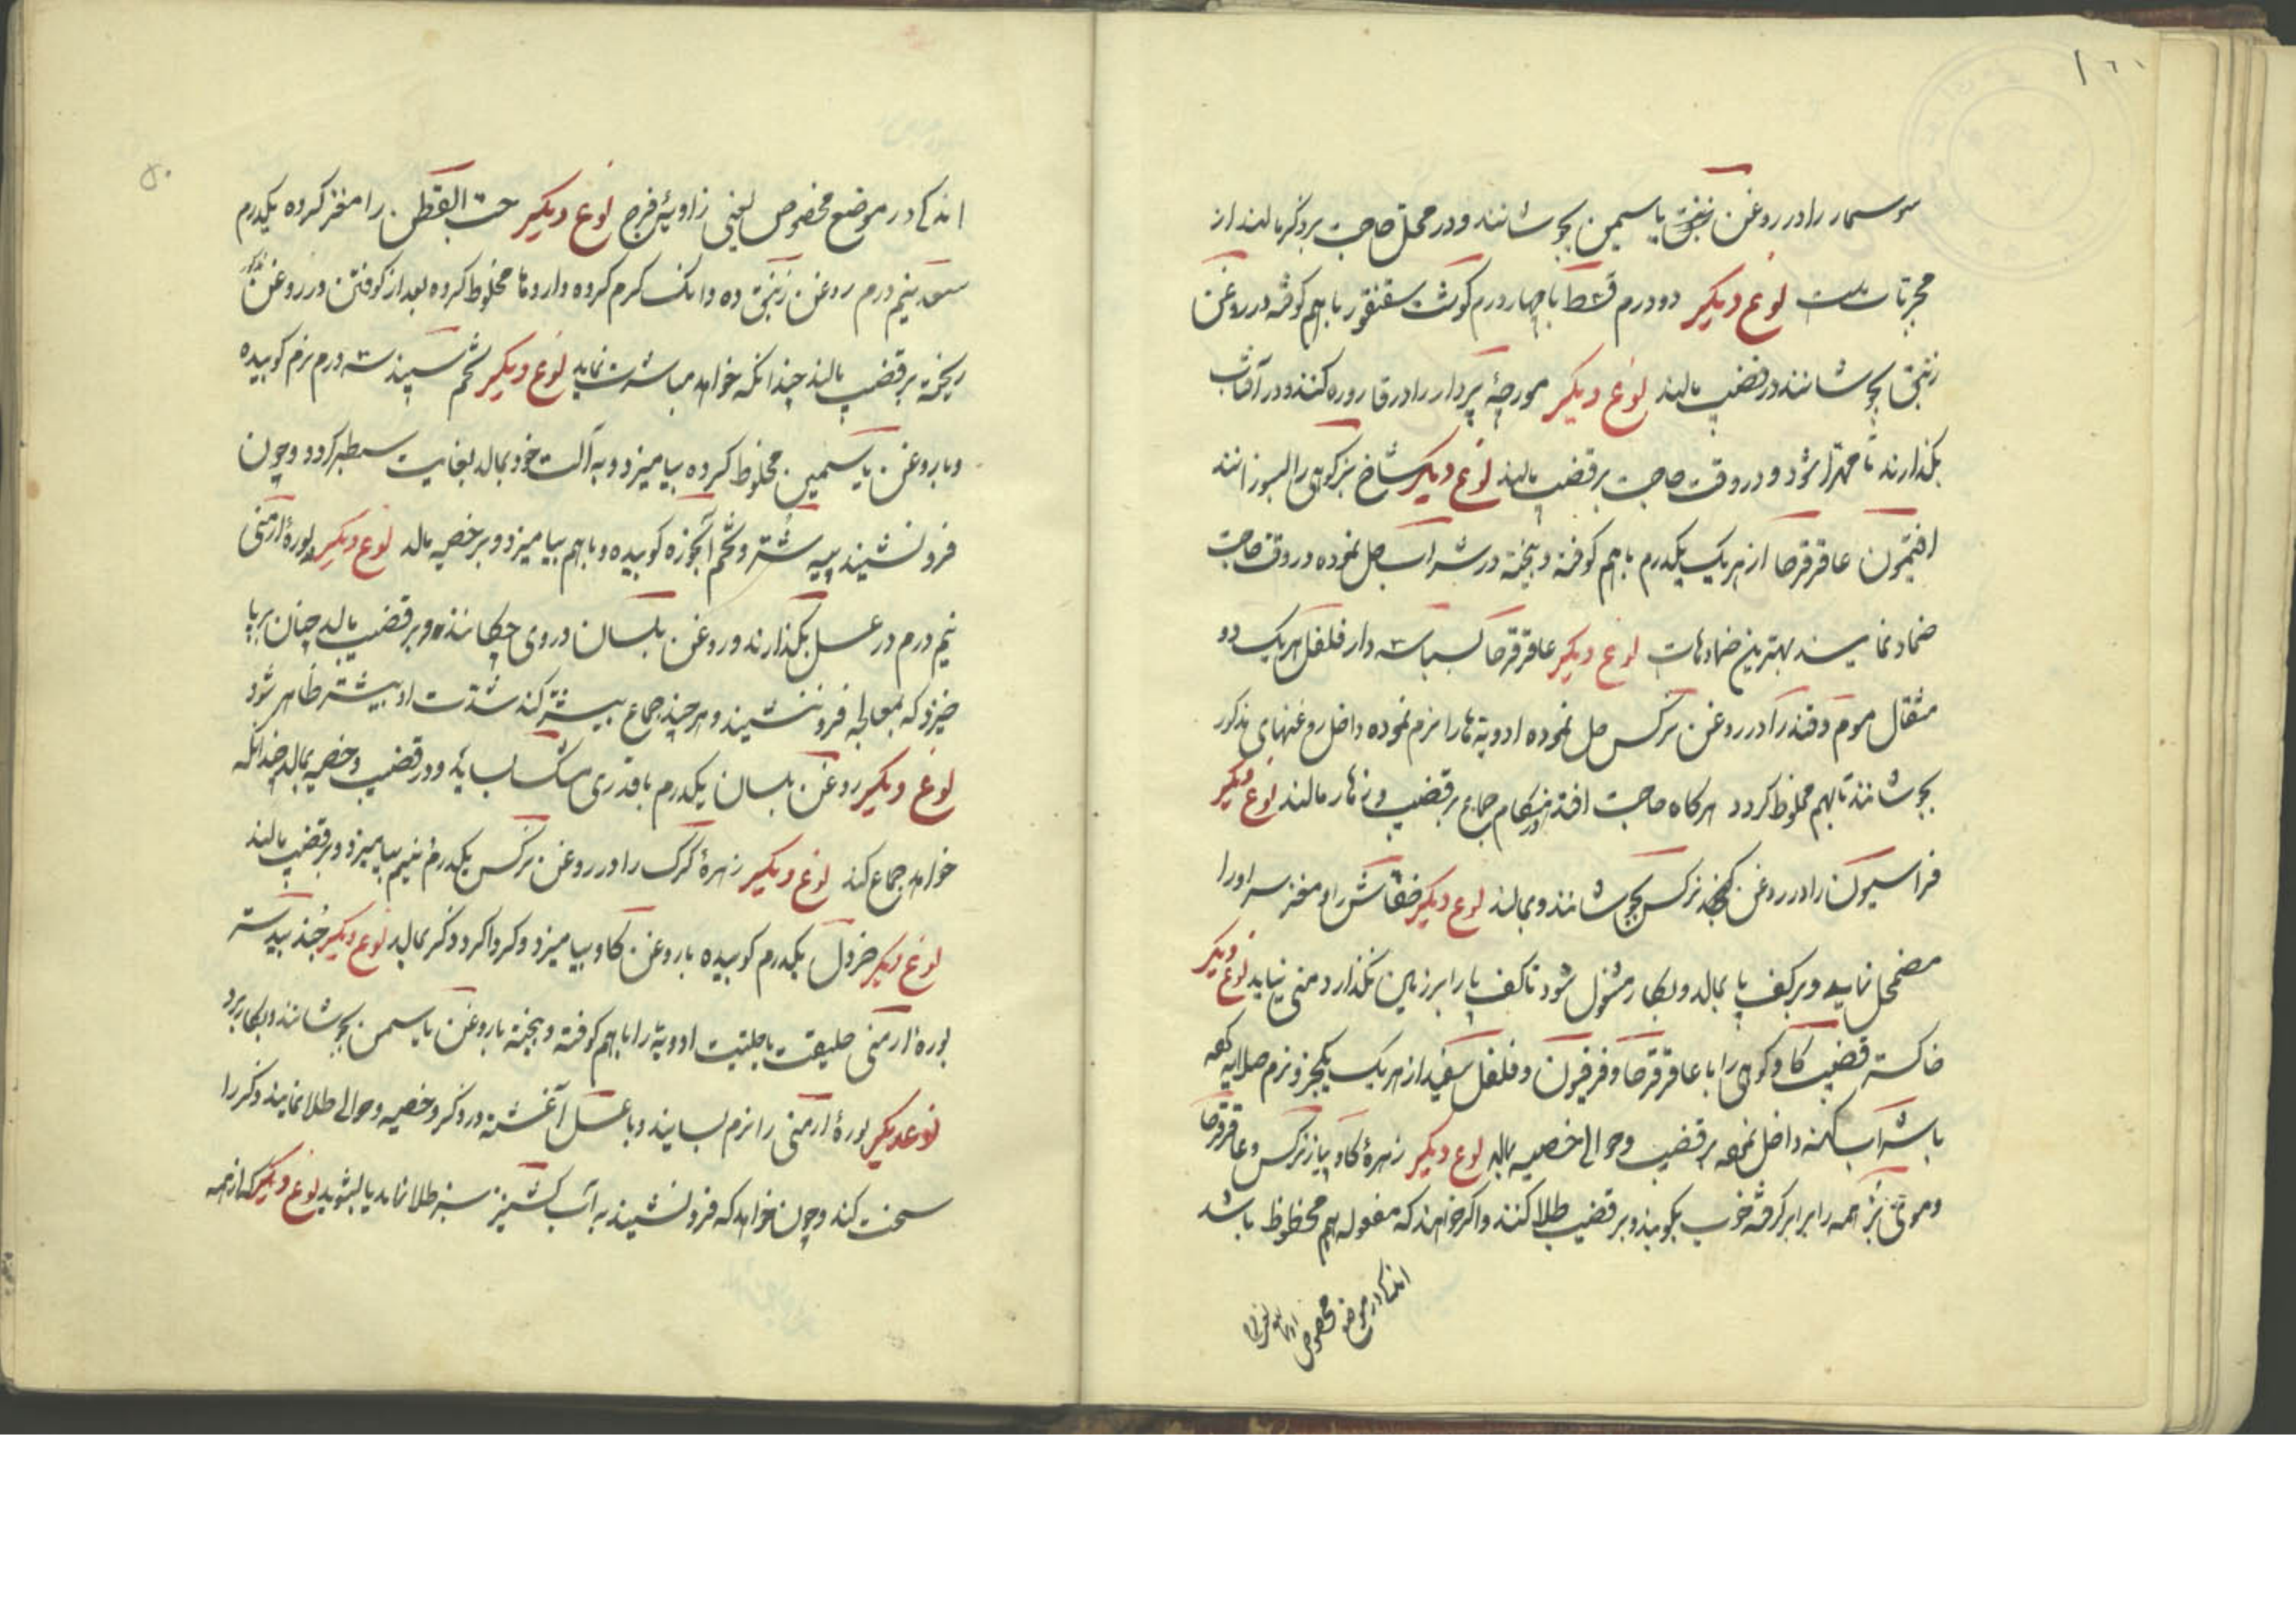 سوسمار را در روغن زنبق یاسمین بجوشانند و در محل حاجت بر ذکر مالند از
مجربات است نوع دیکر دو درم قسط با چهار درم کوشت سقنقور با هم کوفته در روغن
زنبق بجوشانند و در قضیب مالند نوع دیکر مورچهٔ پردار را در قاروره کنند و در آفتاب
بکذارند تا مهترا شود و در وقت حاجت بر قضیب مالند نوع دیکر شاخ بز کوهی را بسوزانند
افتیمون عاقرقرحا از هر یک یکدرم با هم کوفته و بیخته در شراب حل نموده در وقت حاجت
ضماد نمایند بهترین ضمادهات نوع دیکر عاقرقرحا بسباسه دارفلفل هر یک دو
مثقال موم و قند را در روغن نرکس حل نموده ادویه‌ها را نرم نموده داخل روغنهای مذکور
بجوشانند تا بهم مخلوط کردد هرکاه حاجت افتد در هنکام جماع بر قضیب و زهار مالند نوع دیکر
فراسیون را در روغن نرکس بجوشانند و بمالند نوع دیکر خفاش را و مغز سر او را
مضمحل نماید و بر کف پا بمالد و بکار مشغول شود تا کف پا را بر زمین نکذارد منی نیاید نوع دیکر
خاکستر قضیب کاو کوهی را با عاقرقرحا و فرفیون و فلفل سفید از هر یک یکجزو نرم صلایه کرده
با شراب کهنه داخل نموده بر قضیب و حوالی خصیه بمالد نوع دیکر زهرهٔ کاو پیاز نرکس و عاقرقرحا
و موی بز همه را برابر کرفته خوب بکوبند و بر قضیب طلا کنند و اکر خواهند که مفعوله هم محظوظ باشد
اندکی در موضع مخصوص
اندکی در موضع مخصوص یعنی زاویهٔ فرج نوع دیکر حب القطن را مغز کرده یکدرم
سعد نیم درم روغن زنبق ده دانک کرم کرده و داروها مخلوط کرده بعد از کوفتن در روغن
ریخته بر قضیب مالند چندانکه خواهد مباشرت نماید نوع دیکر تخم سپند سه درم نرم کوبیده
و با روغن یاسمین مخلوط کرده بیامیزد و به آلت خود بمالد بغایت سطبر کردد و چون
فرو نشیند پیه شتر و تخم انجره کوبیده و با هم بیامیزد و بر خصیه مالد نوع دیکر بورهٔ ارمنی
نیم درم در عسل بکذارند و روغن بلسان در وی چکانند و بر قضیب مالد چنان برپا
خیزد که بمعالجه فرو ننشیند و هر چند جماع بیشتر کند شدت او بیشتر ظاهر شود
نوع دیکر روغن بلسان یکدرم با قدری مشک بساید و در قضیب و خصیه بمالد چندانکه
خواهد جماع کند نوع دیکر زهرهٔ کرک را در روغن نرکس یکدرم نیم بیامیزد و بر قضیب مالند
نوع دیکر خردل یکدرم کوبیده با روغن کاو بیامیزد و کرداکرد ذکر بمالد نوع دیکر جند بیدستر
بورهٔ ارمنی حلیقت با حلتیت ادویه را با هم کوفته و بیخته با روغن یاسمن بجوشانند و بکار برد
نوع دیکر بورهٔ ارمنی را نرم بسایند و با عسل آغشته در ذکر و خصیه و حوالی طلا نمایند ذکر را
سخت کند و چون خواهد که فرو نشیند به آب کشنیز سبز طلا نماید یا بشوید نوع دیکر که از همه